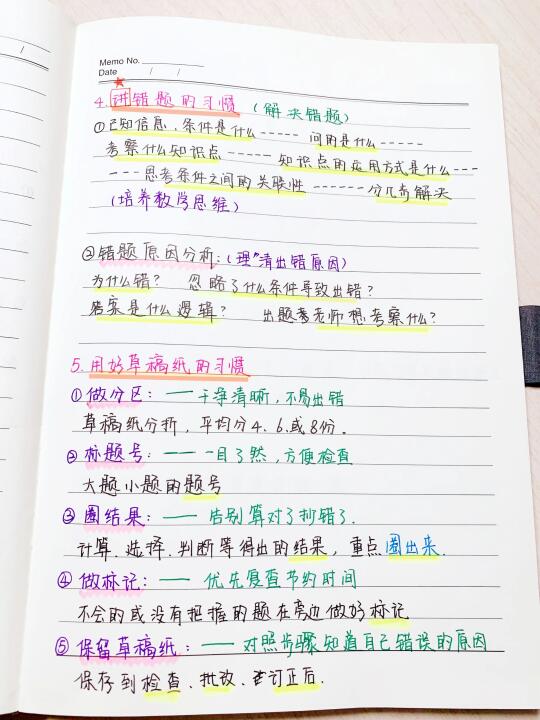 Memo No.
Date / /
4. 讲错题的习惯 (解决错题)
①已知信息、条件是什么----- 问的是什么-----
考察什么知识点----- 知识点的运用方式是什么---
---思考条件之间的关联性------分几步解决
(培养数学思维)
②错题原因分析:(理"清出错原因)
为什么错? 忽略了什么条件导致出错?
答案是什么逻辑? 出题老师想考察什么?
5. 用好草稿纸的习惯
①做分区:——干净清晰,不易出错
草稿纸分折,平均分4、6、或8份.
②标题号:——一目了然,方便检查
大题小题的题号
③圈结果:—— 告别算对了抄错了.
计算、选择、判断等得出的结果,重点圈出来.
④做标记:—— 优先复查节约时间
不会的或没有把握的题在旁边做好标记
⑤保留草稿纸:——对照步骤知道自己错误的原因
保存到检查、批改、订正后.